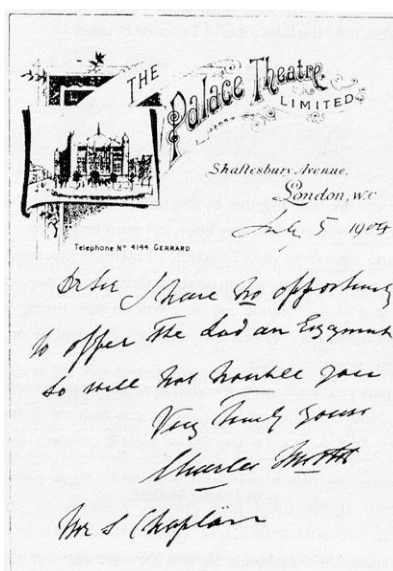 THE
Palace Theatre
LIMITED
Shaftesbury Avenue,
London, W.C
July 5 1904
Telephone Nº 4144 GERRARD.
Dr Sir I have no opportunity
to offer the Lad an Engagement
so will not trouble you
Very Truly yours
Charles
Mr S Chaplin